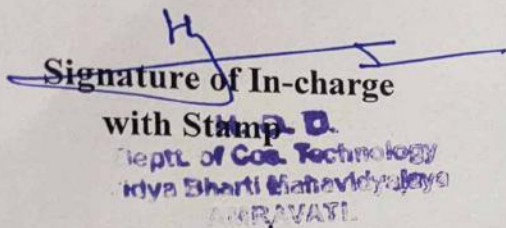 Signature of In-charge
with Stamp
H. O. D.
Deptt. of Cos. Technology
Vidya Bharti Mahavidyalaya
AMRAVATI.